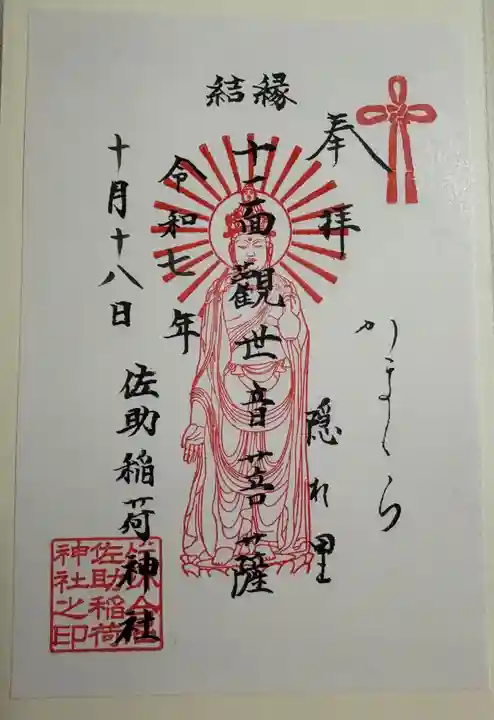 縁結
奉拝
かまくら
隠れ里
十一面観世音菩薩
令和七年
十月十八日
佐助稲荷神社
佐助稲荷
神社之印